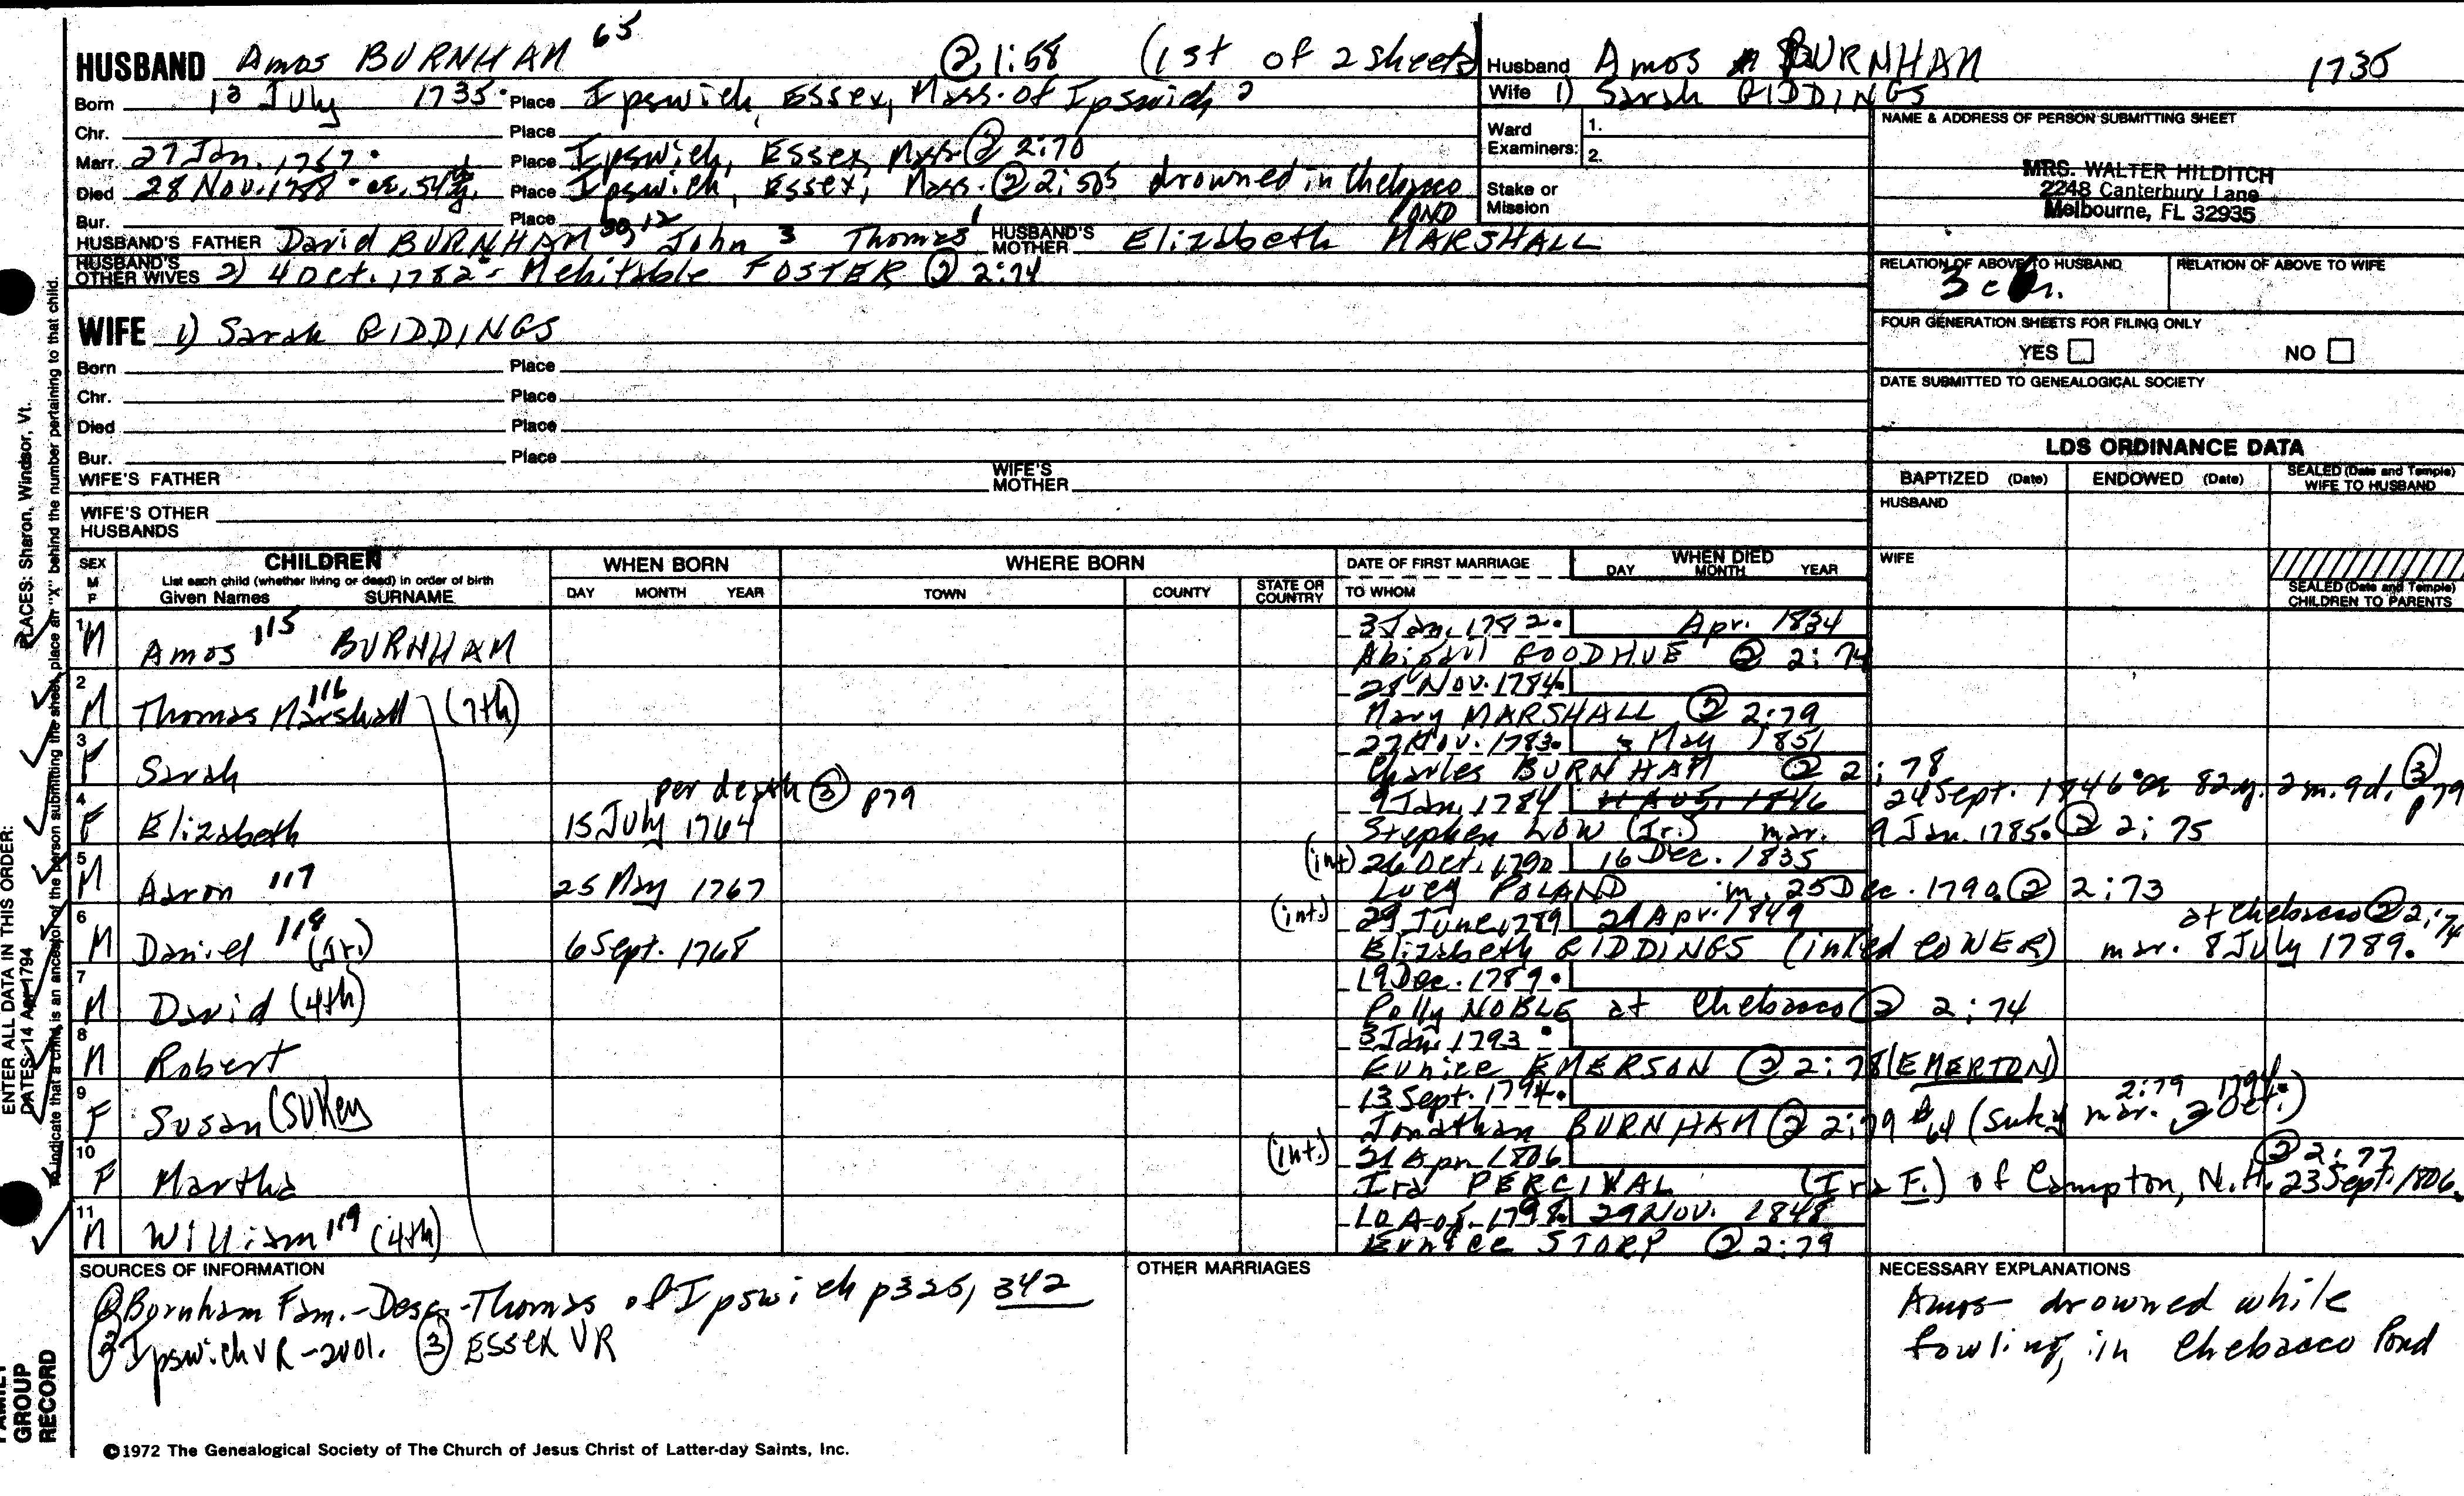 HUSBAND Amos BURNHAM 65 ② 1:58 (1st of 2 sheets)
Born 13 July 1735. Place Ipswich, Essex, Mass. of Ipswich 2
Chr. Place
Marr. 27 Jan. 1757. Place Ipswich, Essex, Mass. ② 2:70
Died 28 Nov. 1788 ae. 54 y. Place Ipswich, Essex, Mass. ② 2:505 drowned in Chebacco Pond
Bur. Place
HUSBAND'S FATHER David BURNHAM 30, 12 John 3 Thomas 1 HUSBAND'S MOTHER Elizabeth MARSHALL
HUSBAND'S OTHER WIVES 2) 4 Oct. 1782 - Mehitable FOSTER ② 2:74
WIFE 1) Sarah GIDDINGS
Born Place
Chr. Place
Died Place
Bur. Place
WIFE'S FATHER WIFE'S MOTHER
WIFE'S OTHER HUSBANDS
Husband Amos BURNHAM 1735
Wife 1) Sarah GIDDINGS
Ward Examiners: 1. 2.
Stake or Mission
NAME & ADDRESS OF PERSON SUBMITTING SHEET
MRS. WALTER HILDITCH
2248 Canterbury Lane
Melbourne, FL 32935
RELATION OF ABOVE TO HUSBAND RELATION OF ABOVE TO WIFE
FOUR GENERATION SHEETS FOR FILING ONLY
YES NO
DATE SUBMITTED TO GENEALOGICAL SOCIETY
LDS ORDINANCE DATA
BAPTIZED (Date) ENDOWED (Date) SEALED (Date and Temple) WIFE TO HUSBAND
HUSBAND
WIFE
SEALED (Date and Temple) CHILDREN TO PARENTS
SEX M F CHILDREN WHEN BORN WHERE BORN DATE OF FIRST MARRIAGE WHEN DIED
List each child (whether living or dead) in order of birth
Given Names SURNAME DAY MONTH YEAR TOWN COUNTY STATE OR COUNTRY TO WHOM DAY MONTH YEAR
1 M Amos 115 BURNHAM 3 Jan. 1782. Apr. 1834
Abigail GOODHUE ② 2:74
2 M Thomas Marshall 116 (7th) 28 Nov. 1784.
Mary MARSHALL ② 2:79
3 F Sarah 27 Nov. 1783. 3 May 1851
Charles BURNHAM ② 2:78
4 F Elizabeth 15 July 1764 per death ③ p79 9 Jan. 1784 24 Sept. 1846 ae 82y. 2m. 9d. ③ p79
Stephen LOW (Jr.) mar. 9 Jan. 1785. ② 2:75
5 M Aaron 117 25 May 1767 (int) 26 Oct. 1790 16 Dec. 1835
Lucy POLAND m. 25 Dec. 1790. ② 2:73
6 M Daniel 118 (Jr.) 6 Sept. 1768 (int.) 29 June 1789 29 Apr. 1849 at Chebacco ② 2:74
Elizabeth GIDDINGS (inked CONER) mar. 8 July 1789.
7 M David (4th) 19 Dec. 1789.
Polly NOBLE at Chebacco ② 2:74
8 M Robert 3 Jan. 1793.
Eunice EMERSON ② 2:78 (EMERTON)
9 F Susan (Sukey 13 Sept. 1794.
Jonathan BURNHAM ② 2:79 & 64 (Suky mar. 2 Oct. 1794.) 2:79
10 F Martha (int.) 21 Apr. 1806
Ira PERCIVAL (Ira F.) of Campton, N.H. 23 Sept. 1806. ② 2:77
11 M William 119 (4th) 1798. 29 Nov. 1848
Eunice STORY ② 2:79
SOURCES OF INFORMATION
① Burnham Fam. - Desc. - Thomas of Ipswich p325, 342
② Ipswich VR - 2 vol. ③ ESSEX VR
OTHER MARRIAGES
NECESSARY EXPLANATIONS
Amos drowned while
fowling, in Chebacco Pond
©1972 The Genealogical Society of The Church of Jesus Christ of Latter-day Saints, Inc.
FAMILY GROUP RECORD
ENTER ALL DATA IN THIS ORDER:
DATES: 14 Apr 1794
PLACES: Sharon, Windsor, Vt.
To indicate that a child is an ancestor of the person submitting the sheet, place an "X" behind the number pertaining to that child.